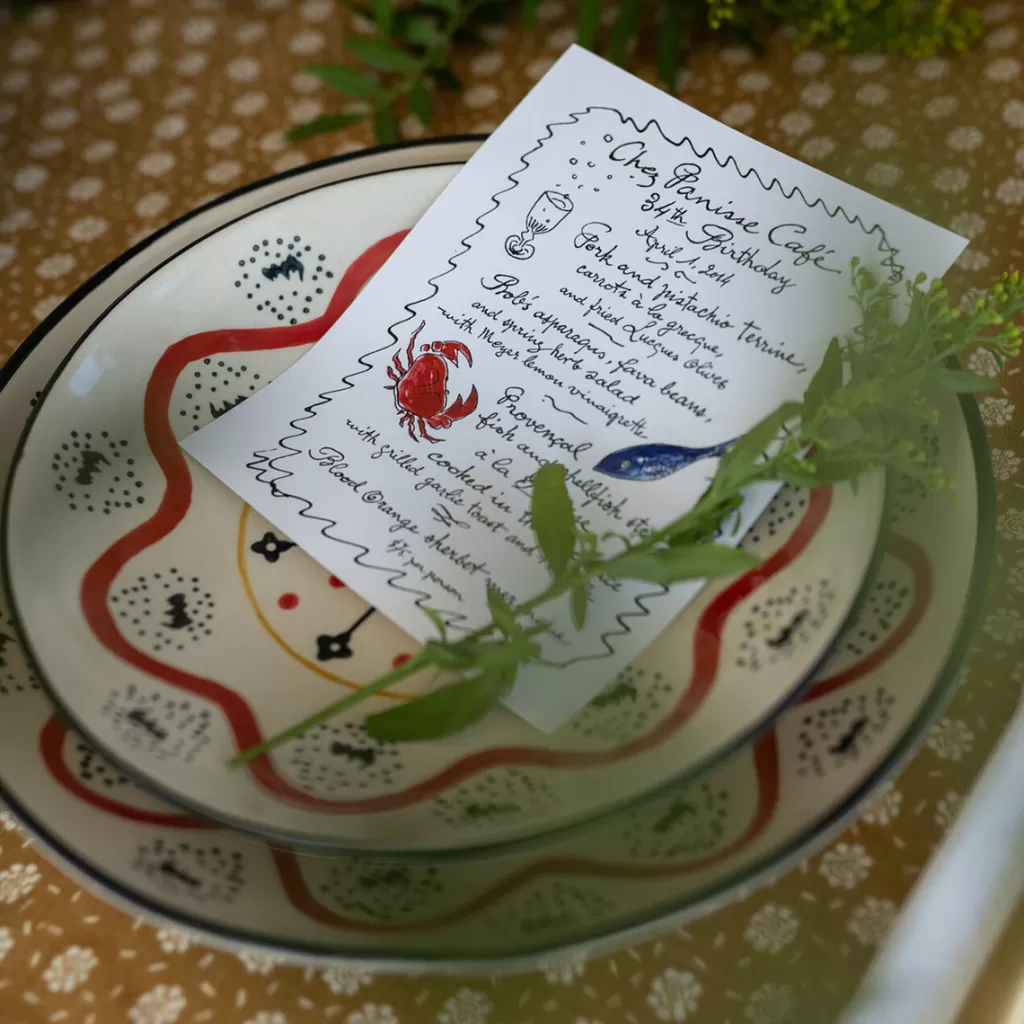 Chez Panisse Café
34th Birthday
April 1, 2014
Pork and pistachio terrine,
carrots à la grecque,
and fried Lucques olives
Bob's asparagus, fava beans,
and spring herb salad
with Meyer lemon vinaigrette
Provençal
fish and shellfish
à la
cooked in the
with grilled garlic toast and
Blood Orange sherbet